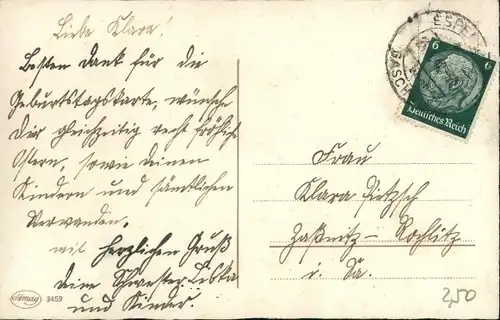 Liebe Klara!
Besten Dank für die
Geburtstagskarte, wünsche
Dir gleichzeitig recht fröhliche
Ostern, sowie deinen
Kindern und sämtlichen
Verwanden,
mit herzlichen Gruß
deine Schwester
und Kinder.
Amag 3459
6 6
Deutsches Reich
Frau
Klara Pietzsch
Zaßnitz - Rochlitz
i. Sa.
2,50